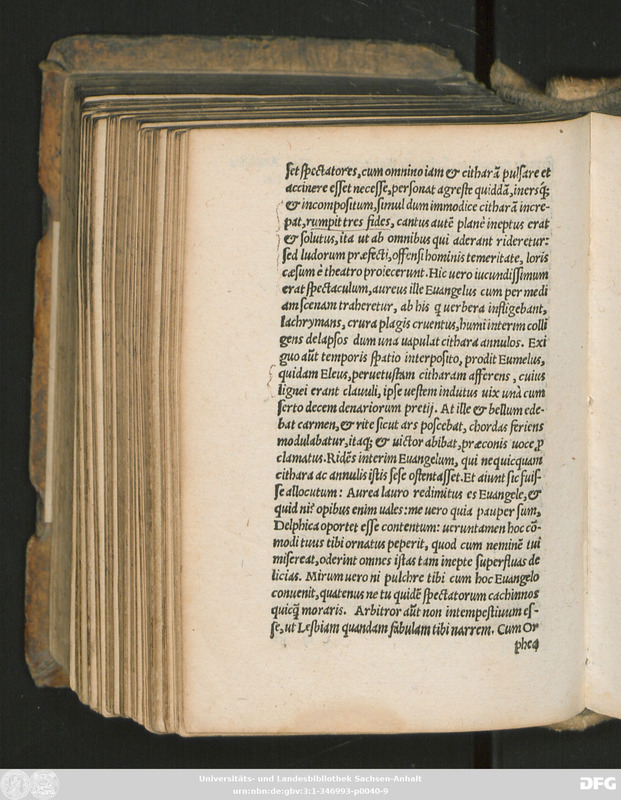 set spectatores, cum omnino iam & citharā pulsare et
accinere esset necesse, personat agreste quiddā, inersq́;
& incompositum, simul dum immodice citharā incre-
pat, rumpit tres fides, cantus autē planè ineptus erat
& solutus, ita ut ab omnibus qui aderant rideretur:
sed ludorum præfecti, offensi hominis temeritate, loris
cæsum è theatro proiecerunt. Hic uero iucundissimum
erat spectaculum, aureus ille Euangelus cum per medi
am scenam traheretur, ab his q uerbera instigebant,
lachrymans, crura plagis cruentus, humi interim colli
gens delapsos dum una uapulat cithara annulos. Exi
guo aūt temporis spatio interposito, prodit Eumelus,
quidam Eleus, peruetustam citharam afferens, cuius
lignei erant clauuli, ipse uestem indutus uix unà cum
serto decem denariorum pretij. At ille & bellum ede-
bat carmen, & rite sicut ars poscebat, chordas feriens
modulabatur, itaq; & uictor abibat, præconis uoce ꝓ
clamatus. Ridēs interim Euangelum, qui nequicquam
cithara ac annulis istis sese ostentasset. Et aiunt sic fuis-
se allocutum: Aurea lauro redimitus es Euangele, &
quid ni? opibus enim uales: me uero quia pauper sum,
Delphica oportet esse contentum: ueruntamen hoc cō-
modi tuus tibi ornatus peperit, quod cum neminē tui
misereat, oderint omnes istas tam inepte superfluas de
licias. Mirum uero ni pulchre tibi cum hoc Euangelo
conuenit, quatenus ne tu quidē spectatorum cachinnos
quicq̄ moraris. Arbitror aūt non intempestiuum es-
se, ut Lesbiam quandam fabulam tibi narrem. Cum Or
pheꝰ
Universitäts- und Landesbibliothek Sachsen-Anhalt
urn:nbn:de:gbv:3:1-346993-p0040-9
DFG